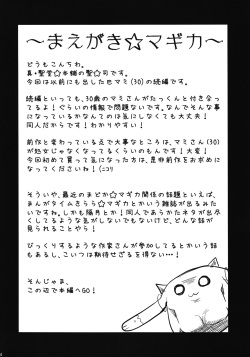 ～まえがき☆マギカ～
どうもこんちわ。
真・聖堂☆本舗の聖☆司です。
今回は以前にも出した巴マミ(30)の続編です。
続編といっても、30歳のマミさんがたっくんと付き合ってるよ!ぐらいの情報で問題ないです。なんでそんな事になっているかなんてのは気にしなくても大丈夫!
同人だからです!わかりやすい!
前作と変わっている次で大事なところは、マミさん(30)が処女じゃなくなってるくらいのもんです!大変!
今回初めて買って気になった方は、是非前作をお求めになってくださいね!(ニコリ
そういや、最近のまどか☆マギカ関係の話題といえば、まんがタイムきらら☆マギカとかいう雑誌が出るみたいですね。しかも隔月とか!同人であらかたネタが出尽くしてるような気がしないでもないけど、どんな話が見れることやら!
びっくりするような作家さんが参加してるとかいう話もあるし、こいつは期待せざるを得ない・・・!
そんじゃま、
この辺で本編へGO!